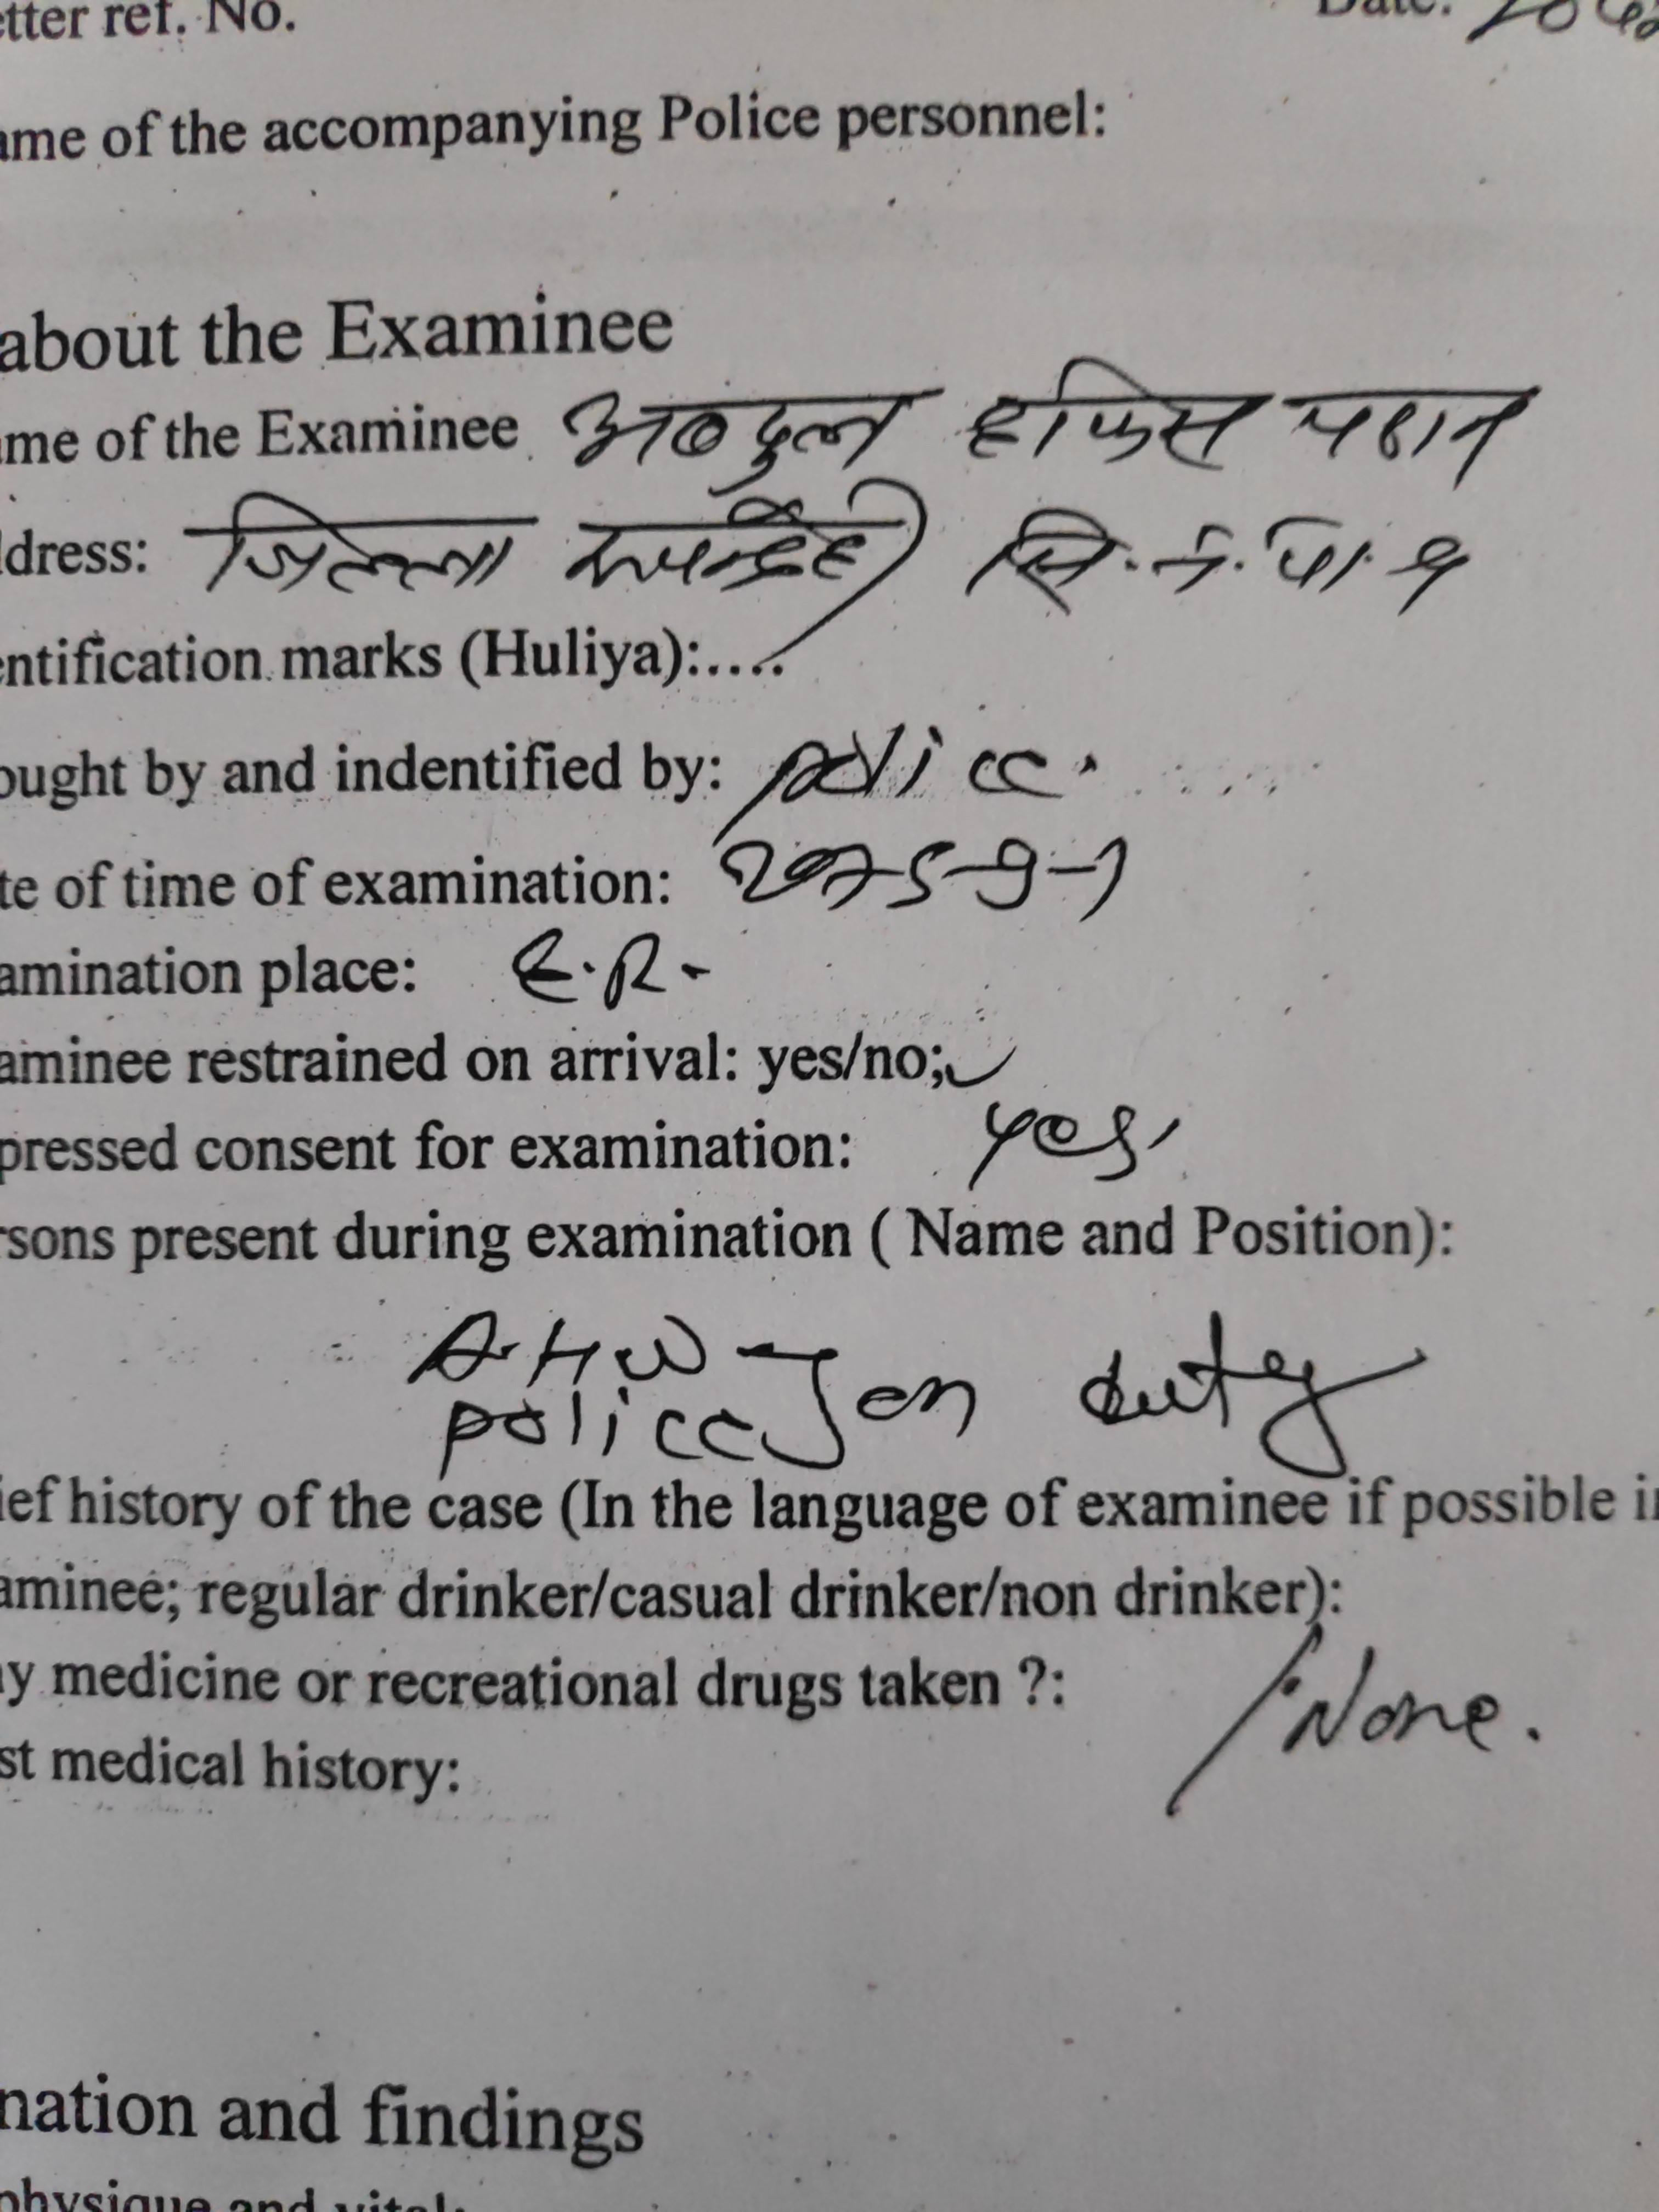 etter ref. No. Date:
ame of the accompanying Police personnel:
about the Examinee
ame of the Examinee अबदुल हाफिस पठान
ddress: जिल्ला रुपन्देही सि.न.पा. १
entification marks (Huliya):....
ought by and indentified by: police.
te of time of examination: 2075-9-1
amination place: E.R.
aminee restrained on arrival: yes/no;
pressed consent for examination: yes,
rsons present during examination ( Name and Position):
A.H.W
police on duty
ief history of the case (In the language of examinee if possible in
aminee; regular drinker/casual drinker/non drinker):
ny medicine or recreational drugs taken ?: None.
st medical history:
nation and findings
physique and vital: